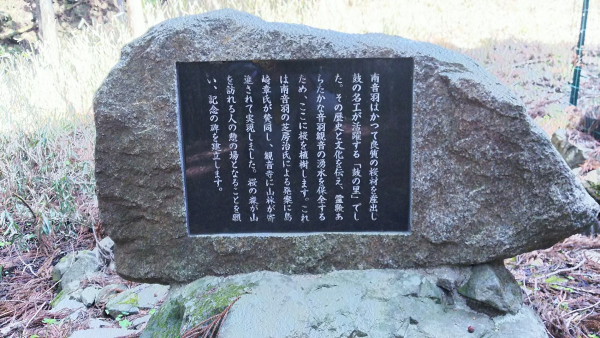 南音羽はかつて良質の桜材を産出し
鼓の名工が活躍する「鼓の里」でし
た。その歴史と文化を伝え、霊験あ
らたかな音羽観音の湧水を保全する
ため、ここに桜を植樹します。これ
は南音羽の芝房治氏による発案に鳥
崎章氏が賛同し、観音寺に山林が寄
進されて実現しました。桜の滝が山
を訪れる人の憩の場となることを願
い、記念の碑を建立します。